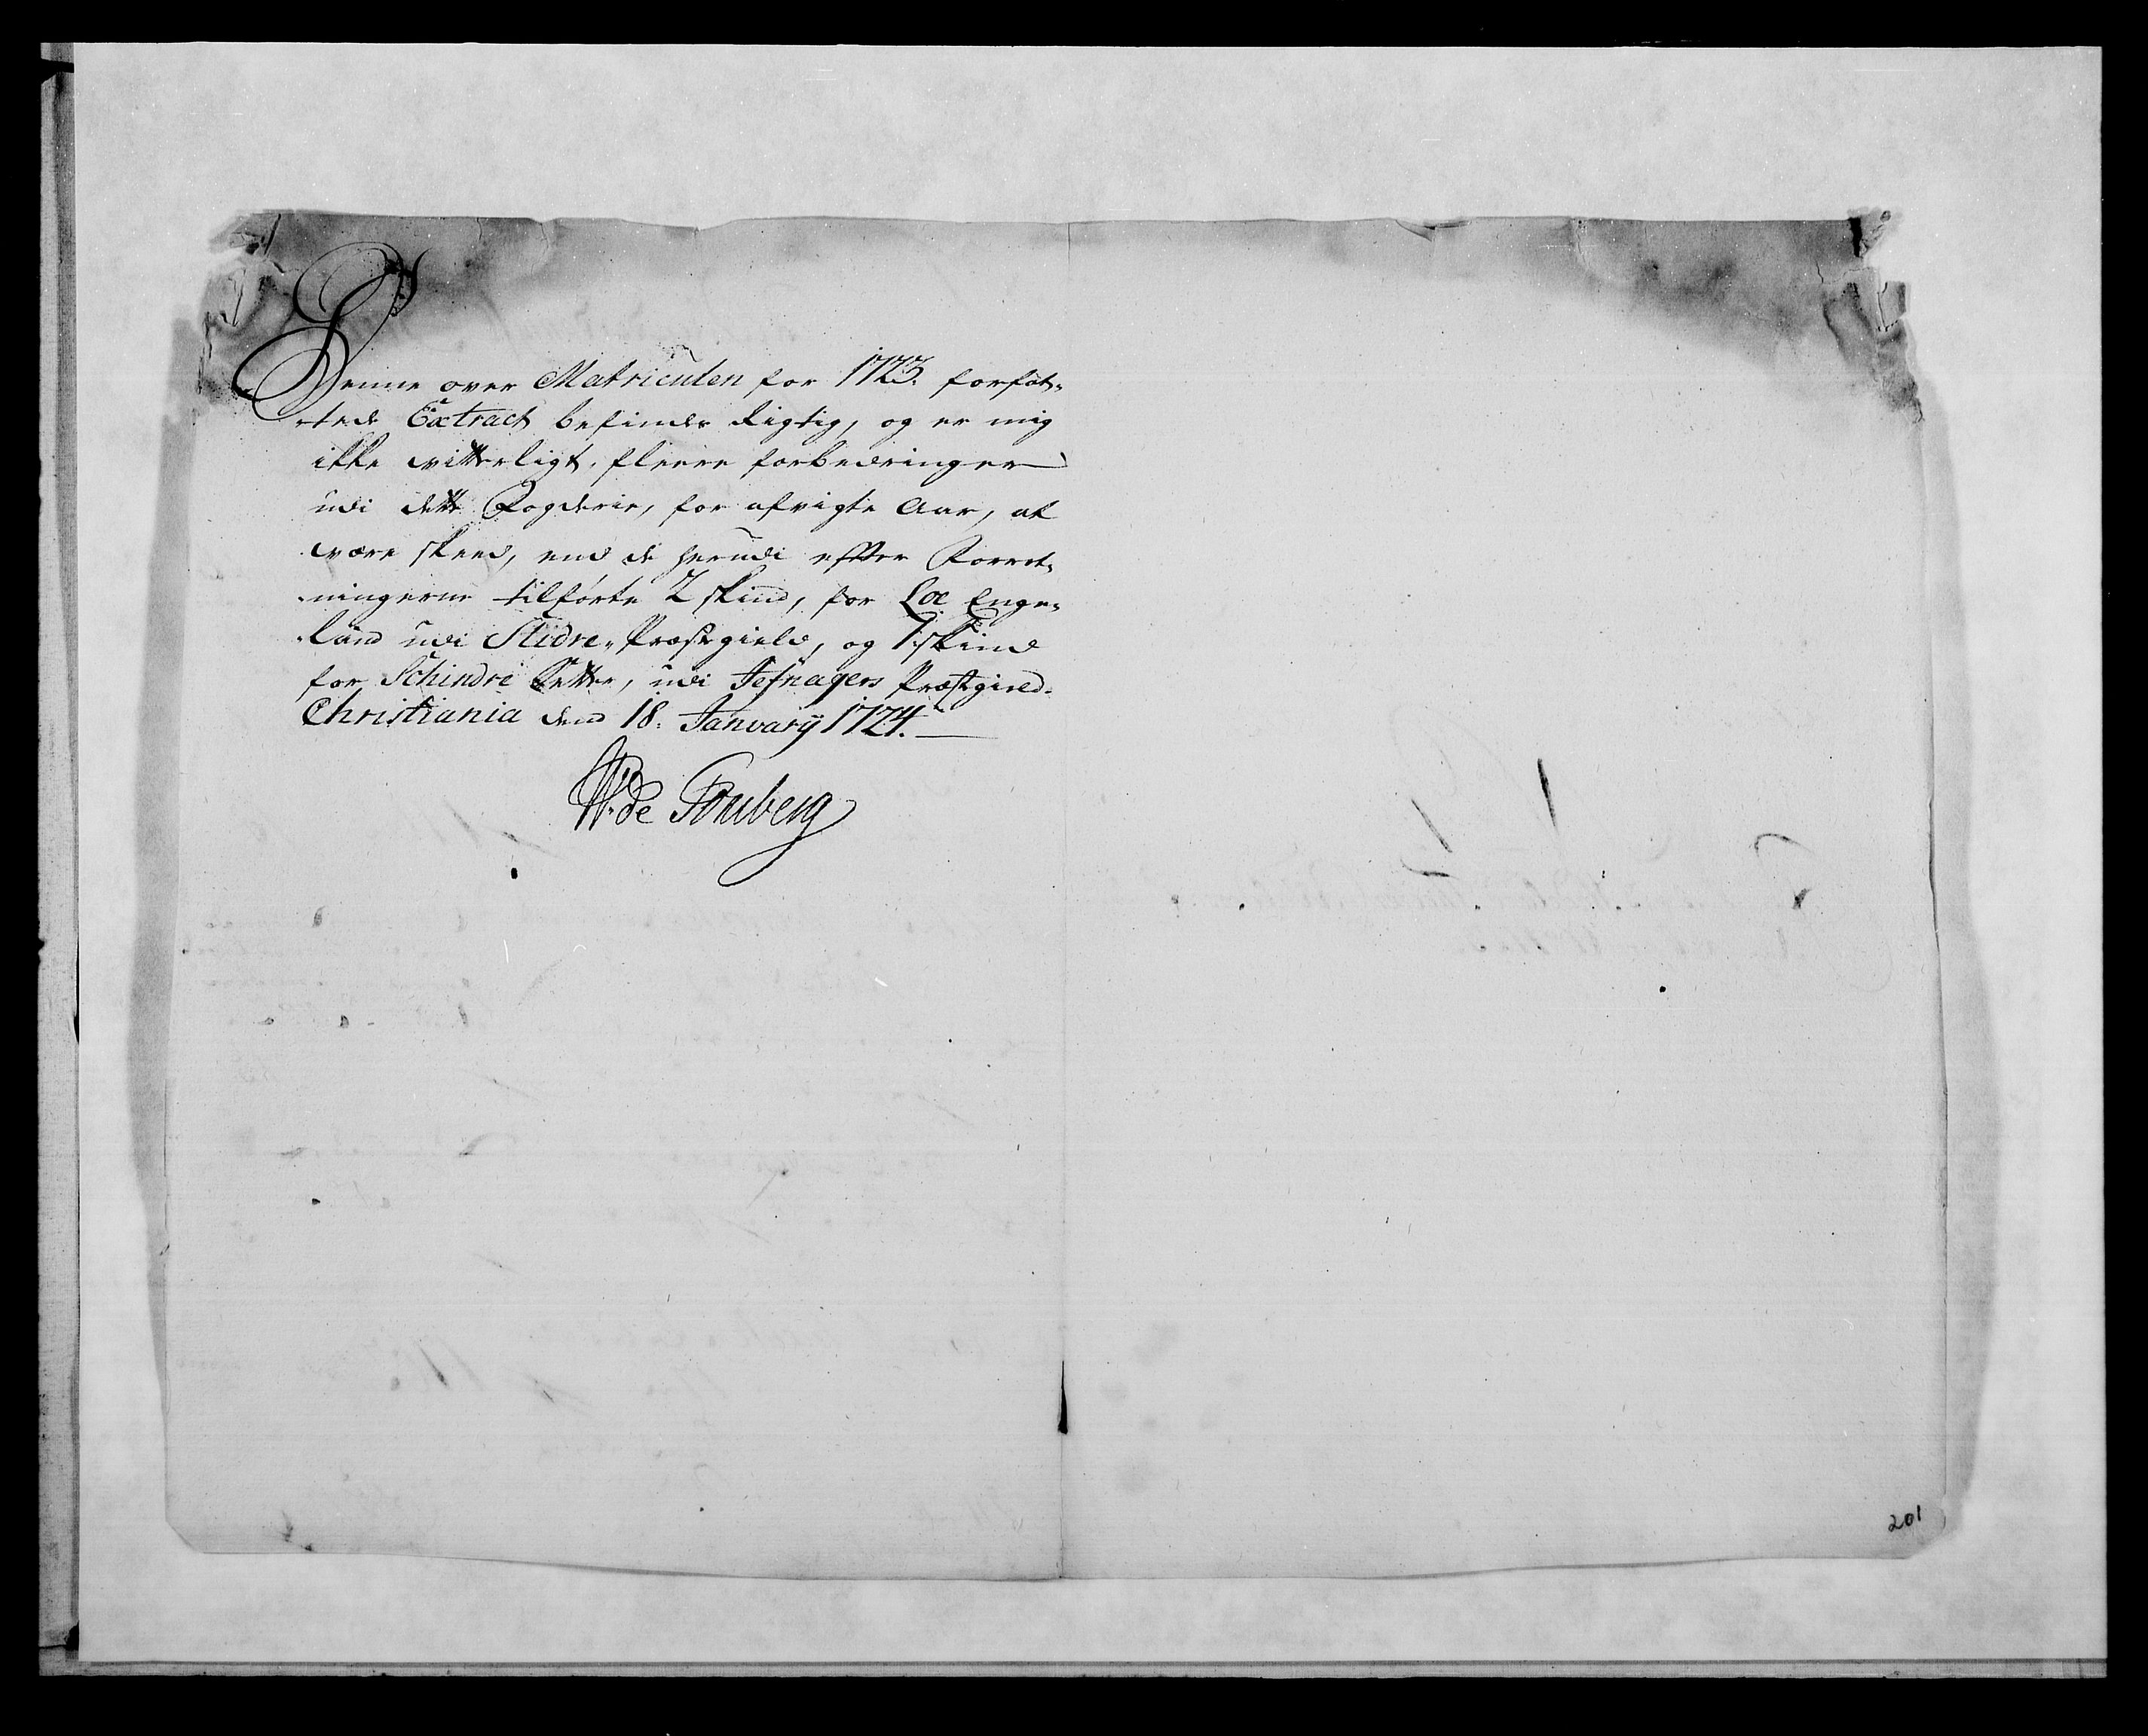 Denne over Matriculen for 1723. forfat-
-tede Extract befindes Rigtig, og er mig
ikke vitterligt, fleere forbedringer
udi dette Fogderie, for afvigte Aar, at
være skeed, end de herudi efter Forret-
-ningerne tilførte 2 skind, for Loe Enge-
-land udi Slidre-Præstegield, og 1 skind
for Schindre Sætter, udi Jefnagers Præstegield.
Christiania den 18. Januarij 1724.
W: de Tonsberg
201